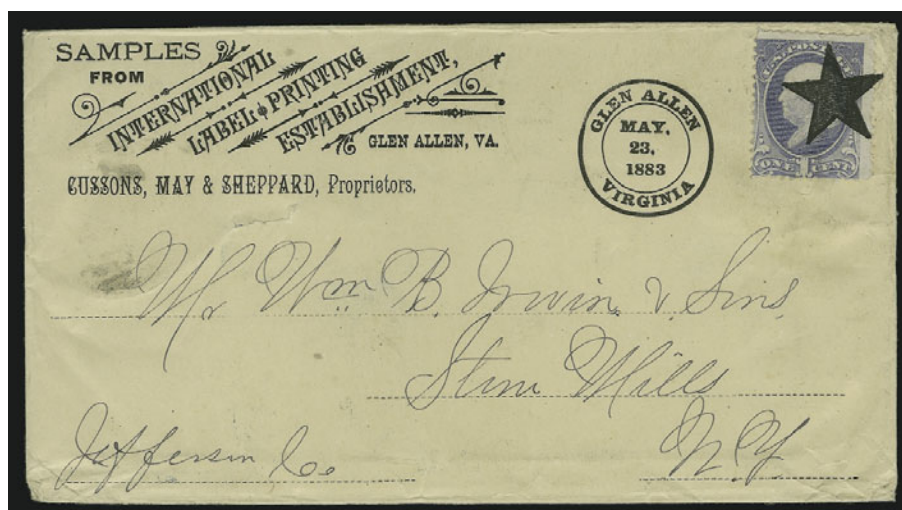 SAMPLES
FROM
INTERNATIONAL
LABEL & PRINTING
ESTABLISHMENT,
GLEN ALLEN, VA.
CUSSONS, MAY & SHEPPARD, Proprietors.
GLEN ALLEN
MAY.
23.
1883
VIRGINIA
ONE CENT
Mr Wm B. Irwin & Sins
Mills
Jefferson Co
N Y